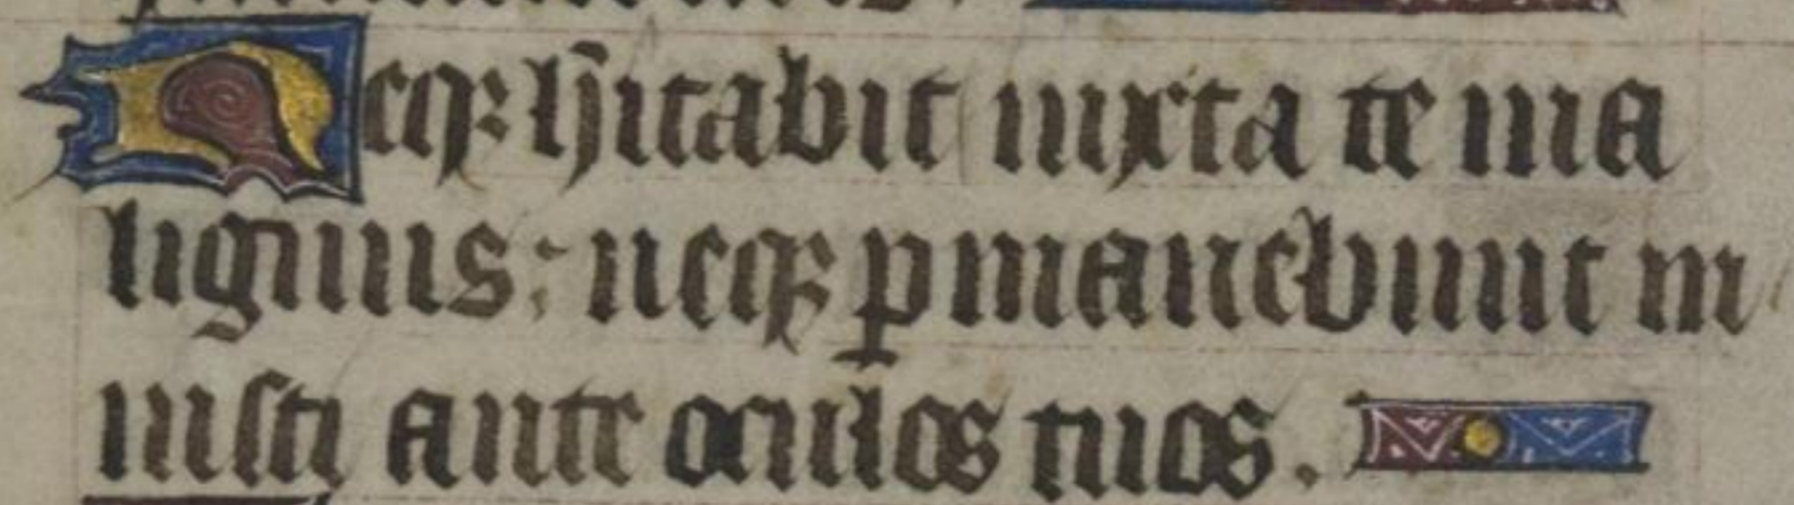 Neqꝫ hĩtabit iuxta te ma
lignus: neqꝫ ꝑmanebunt in
iusti ante oculos tuos.